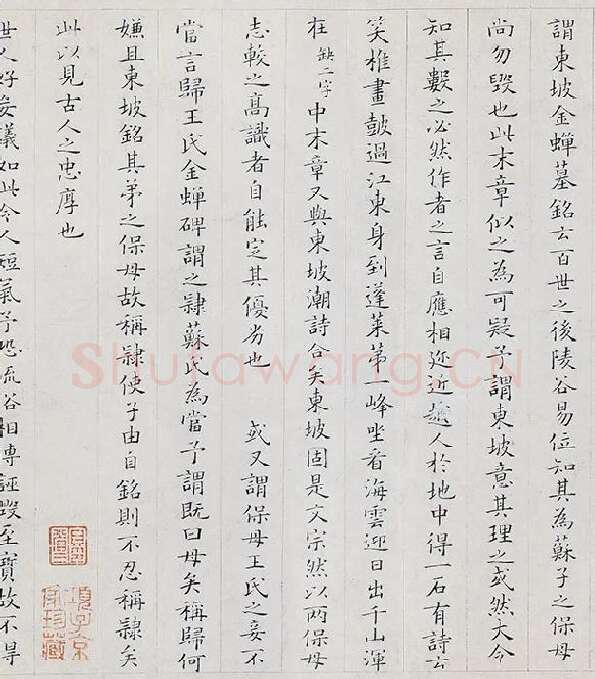 謂東坡金蟬墓銘云百世之後陵谷易位知其為蘇子之保母
尚勿毀也此末章似之為可疑予謂東坡意其理之或然大令
知其數之必然作者之言自應相近越人於地中得一石有詩云
笑椎畫鼓過江東身到蓬萊第一峰坐看海雲迎日出千山渾
在缺二字中末章又與東坡潮詩合矣東坡固是文宗然以兩保母
志較之高識者自能定其優劣也 或又謂保母王氏之妾不
當言歸王氏金蟬碑謂之隸蘇氏為當予謂既曰母矣稱歸何
嫌且東坡銘其弟之保母故稱隸使子由自銘則不忍稱隸矣
此以見古人之忠厚也
世人好妄議如此令人短氣予恐流俗相傳誣毀至寶故不得
Shufawang.CN